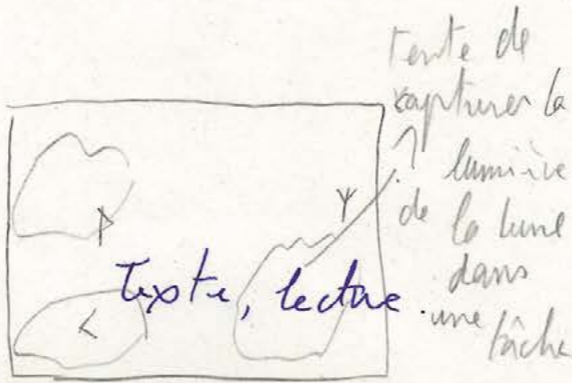 tente de
capturer la
lumière
de la lune
dans
une tâche
ᚹ
ᛉ
Texte, lecture.
ᚲ